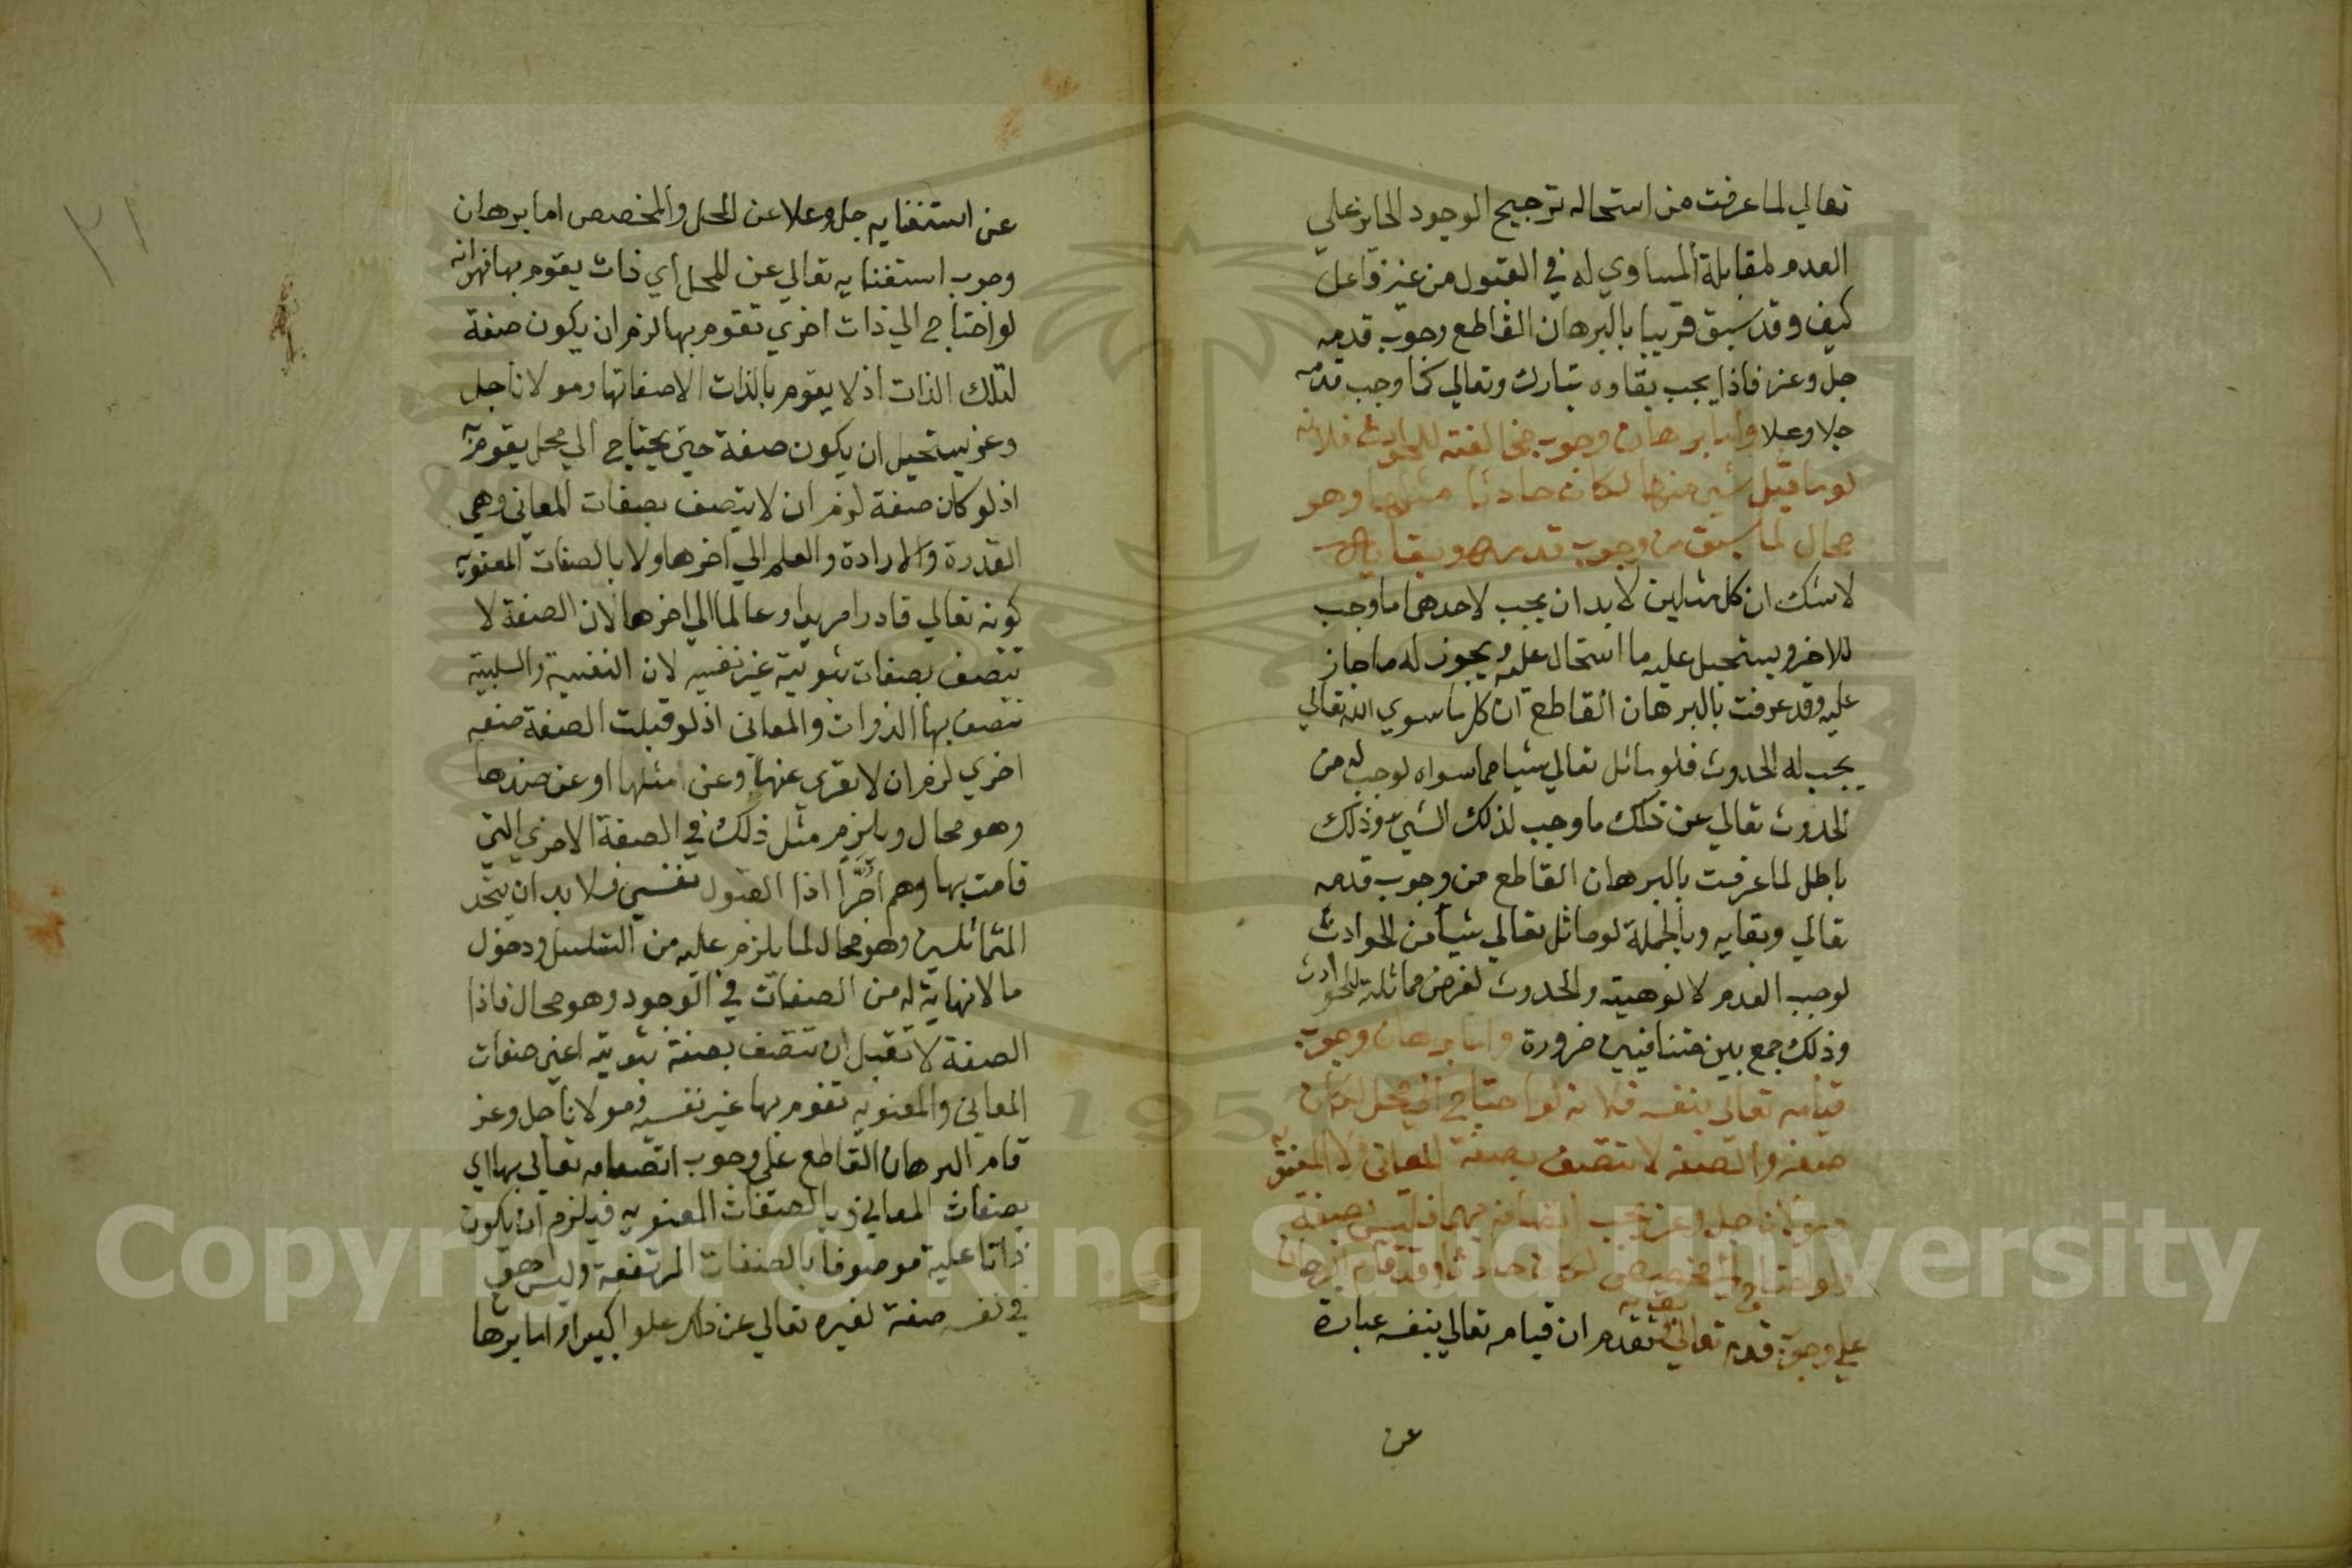 تعالي لما عرفت من استحاله ترجيح الوجود الجايز علي
العدم لمقابلة المساوي له في القبول من غير فاعل
كيف وقد سبق قريبا بالبرهان القاطع وجوب قدمه
جل وعز فاذا يجب بقاوه تبارك وتعالي كما وجب قدمه
جلا وعلا واما برهان وجوب مخالفته للحوادث فلانه
لو ماثل شيئ منها لكان حادثا مثلها وهو
محال لما سبق من وجوب قدمه وبقايه
لا شك ان كل مثلين لا بد ان يجب لاحدهما ما وجب
للاخر ويستحيل عليه ما استحال عليه ويجوز له ما جاز
عليه وقد عرفت بالبرهان القاطع ان كل ما سوي الله تعالي
يجب له الحدوث فلو ماثل تعالي شيا مما سواه لوجب له من
الحدوث تعالي عن ذلك ما وجب لذلك الشيئ وذلك
باطل لما عرفت بالبرهان القاطع من وجوب قدمه
تعالي وبقايه وبالجملة لو ماثل تعالي شيأ من الحوادث
لوجب القدم لالوهيته والحدوث لفرض مماثلته للحوادث
وذلك جمع بين متنافيين ضرورة واما برهان وجوب
قيامه تعالي بنفسه فلانه لو احتاج الي محل لكان
صفة والصفة لا تتصف بصفة المعاني ولا المعنوية
ومولانا جل وعز يجب اتصافه بهما فليس بصفة
ولو احتاج الي مخصص لكان حادثا وقد قام البرهان
علي وجوب قدمه تعالي وبقايه تقدم ان قيامه تعالي بنفسه عبارة
عن
٢١
عن استغنايه جل وعلا عن المحل والمخصص اما برهان
وجوب استغنايه تعالي عن المحل اي ذات يقوم بها فهو انه
لو احتاج الي ذات اخري تقوم بها لزم ان يكون صفة
لتلك الذات اذ لا يقوم بالذات الا صفاتها ومولانا جل
وعز يستحيل ان يكون صفة حتي يحتاج الي محل يقوم به
اذ لو كان صفة لزم ان لا يتصف بصفات المعاني وهي
القدرة والارادة والعلم الي اخرها ولا بالصفات المعنوية
كونه تعالي قادرا مريدا وعالما الي اخرها لان الصفة لا
تتصف بصفات ثبوتية غير نفسيه لان النفسية والسلبية
تتصف بها الذوات والمعاني اذ لو قبلت الصفة صفه
اخري لزم ان لا تعري عنها وعن مثلها او عن ضدها
وهو محال ويلزم مثل ذلك في الصفة الاخري التي
قامت بها وهم جرا اذا القبول نفسي فلا بد ان يتحد
المتماثلين وهو محال لما يلزم عليه من التسلسل ودخول
ما لا نهاية له من الصفات في الوجود وهو محال فاذا
الصفة لا تقبل ان تتصف بصفة ثبوتيه اعني صفات
المعاني والمعنويه تقوم بها غير نفسيه ومولانا جل وعز
قام البرهان القاطع علي وجوب اتصافه تعالي بها اي
بصفات المعاني وبالصفات المعنويه فيلزم ان يكون
ذاتا علية موصوفا بالصفات المرتفعة وليس هو
في نفسه صفة لغيره تعالي عن ذلك علوا كبيرا واما برها
Copyright © King Saud University
1957